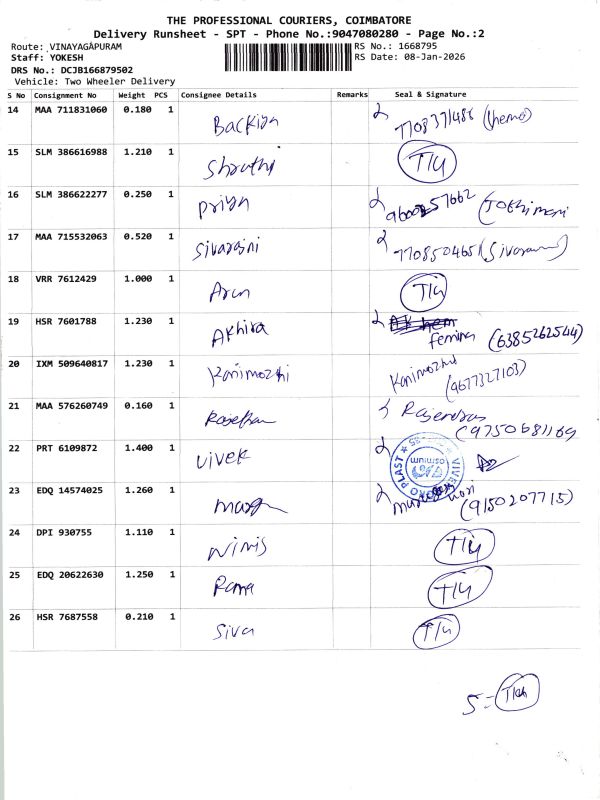 THE PROFESSIONAL COURIERS, COIMBATORE
Delivery Runsheet - SPT - Phone No.:9047080280 - Page No.:2
Route: VINAYAGAPURAM
RS No.: 1668795
Staff: YOKESH
RS Date: 08-Jan-2026
DRS No.: DCJB166879502
Vehicle: Two Wheeler Delivery
S No Consignment No Weight PCS Consignee Details Remarks Seal & Signature
14 MAA 711831060 0.180 1 Backiya 7708371486 (hema)
15 SLM 386616988 1.210 1 Shruthi T/4
16 SLM 386622277 0.250 1 Priya
17 MAA 715532063 0.520 1 Sivarajni 7708504651
18 VRR 7612429 1.000 1 Arun T/4
19 HSR 7601788 1.230 1 Akhira femina (6385262544)
20 IXM 509640817 1.230 1 Kanimozhi Kanimozhi (9677327103)
21 MAA 576260749 0.160 1 Rajendran (9750681169
22 PRT 6109872 1.400 1 Vivek
23 EDQ 14574025 1.260 1 (9150207715)
24 DPI 930755 1.110 1 T/4
25 EDQ 20622630 1.250 1 Rama T/4
26 HSR 7687558 0.210 1 Siva T/4